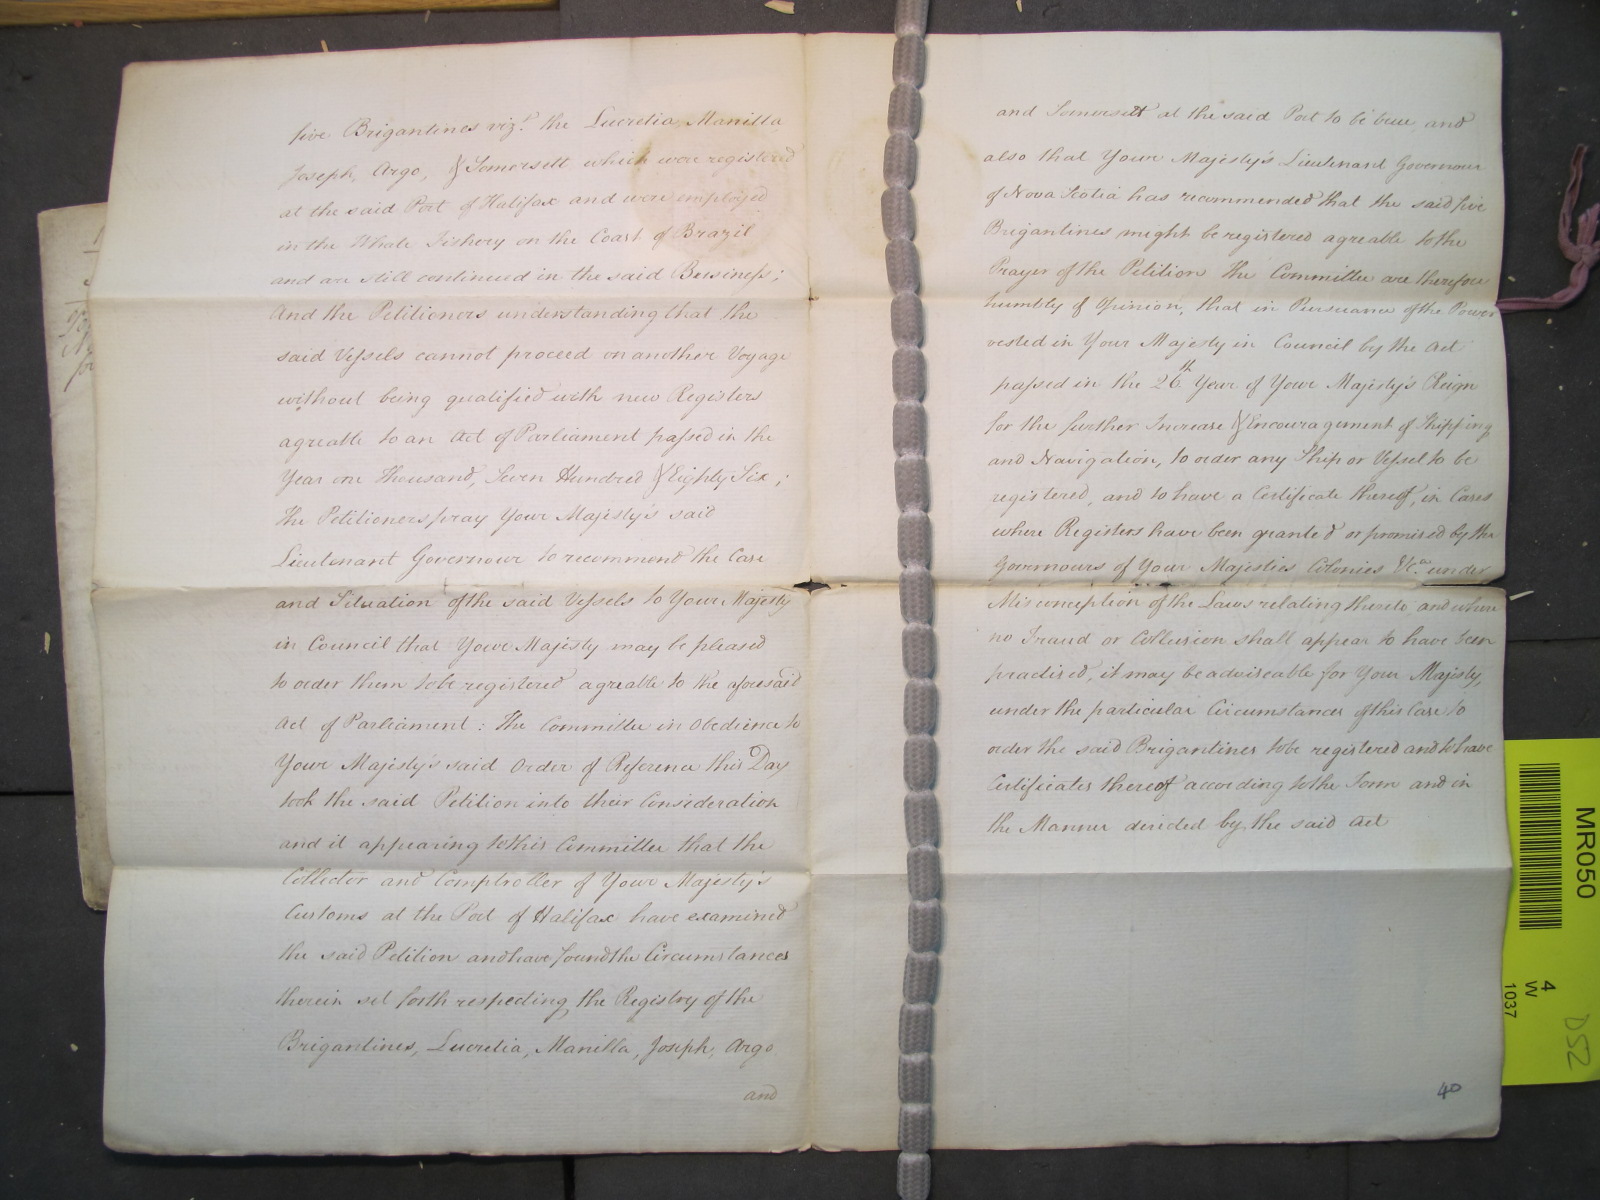 five Brigantines vizt. the Lucretia, Manilla,
Joseph, Argo, & Somersett which were registered
at the said Port of Halifax and were employed
in the Whale Fishery on the Coast of Brazil
and are still continued in the said Business;
And the Petitioners understanding that the
said Vessels cannot proceed on another Voyage
without being qualified with new Registers
agreable to an Act of Parliament passed in the
Year one Thousand, Seven Hundred & Eighty Six;
the Petitioners pray Your Majesty's said
Lieutenant Governour to recommend the Case
and Situation of the said Vessels to Your Majesty
in Council that Your Majesty may be pleased
to order them to be registered agreable to the aforesaid
Act of Parliament: The Committee in Obedience to
Your Majesty's said Order of Reference this Day
took the said Petition into their Consideration
and it appearing to this Committee that the
Collector and Comptroller of Your Majesty's
Customs at the Port of Halifax have examined
the said Petition and have found the Circumstances
therein set forth respecting the Registry of the
Brigantines, Lucretia, Manilla, Joseph, Argo
and
and Somersett at the said Port to be true and
also that Your Majesty's Lieutenant Governour
of Nova Scotia has recommended that the said five
Brigantines might be registered agreable to the
Prayer of the Petition the Committee are therefore
humbly of Opinion, that in Pursuance of the Power
vested in Your Majesty in Council by the Act
passed in the 26th Year of Your Majesty's Reign
for the further Increase & Encouragement of Shipping
and Navigation, to order any Ship or Vessel to be
registered, and to have a Certificate thereof, in Cases
where Registers have been granted or promised by the
Governours of Your Majesties Colonies &ca. under
Misconception of the Laws relating thereto, and where
no Fraud or Collusion shall appear to have been
practised, it may be adviseable for Your Majesty,
under the particular Circumstances of this Case to
order the said Brigantines to be registered and to have
Certificates thereof according to the Form and in
the Manner directed by the said Act
40
MR050
4
W
1037
D52